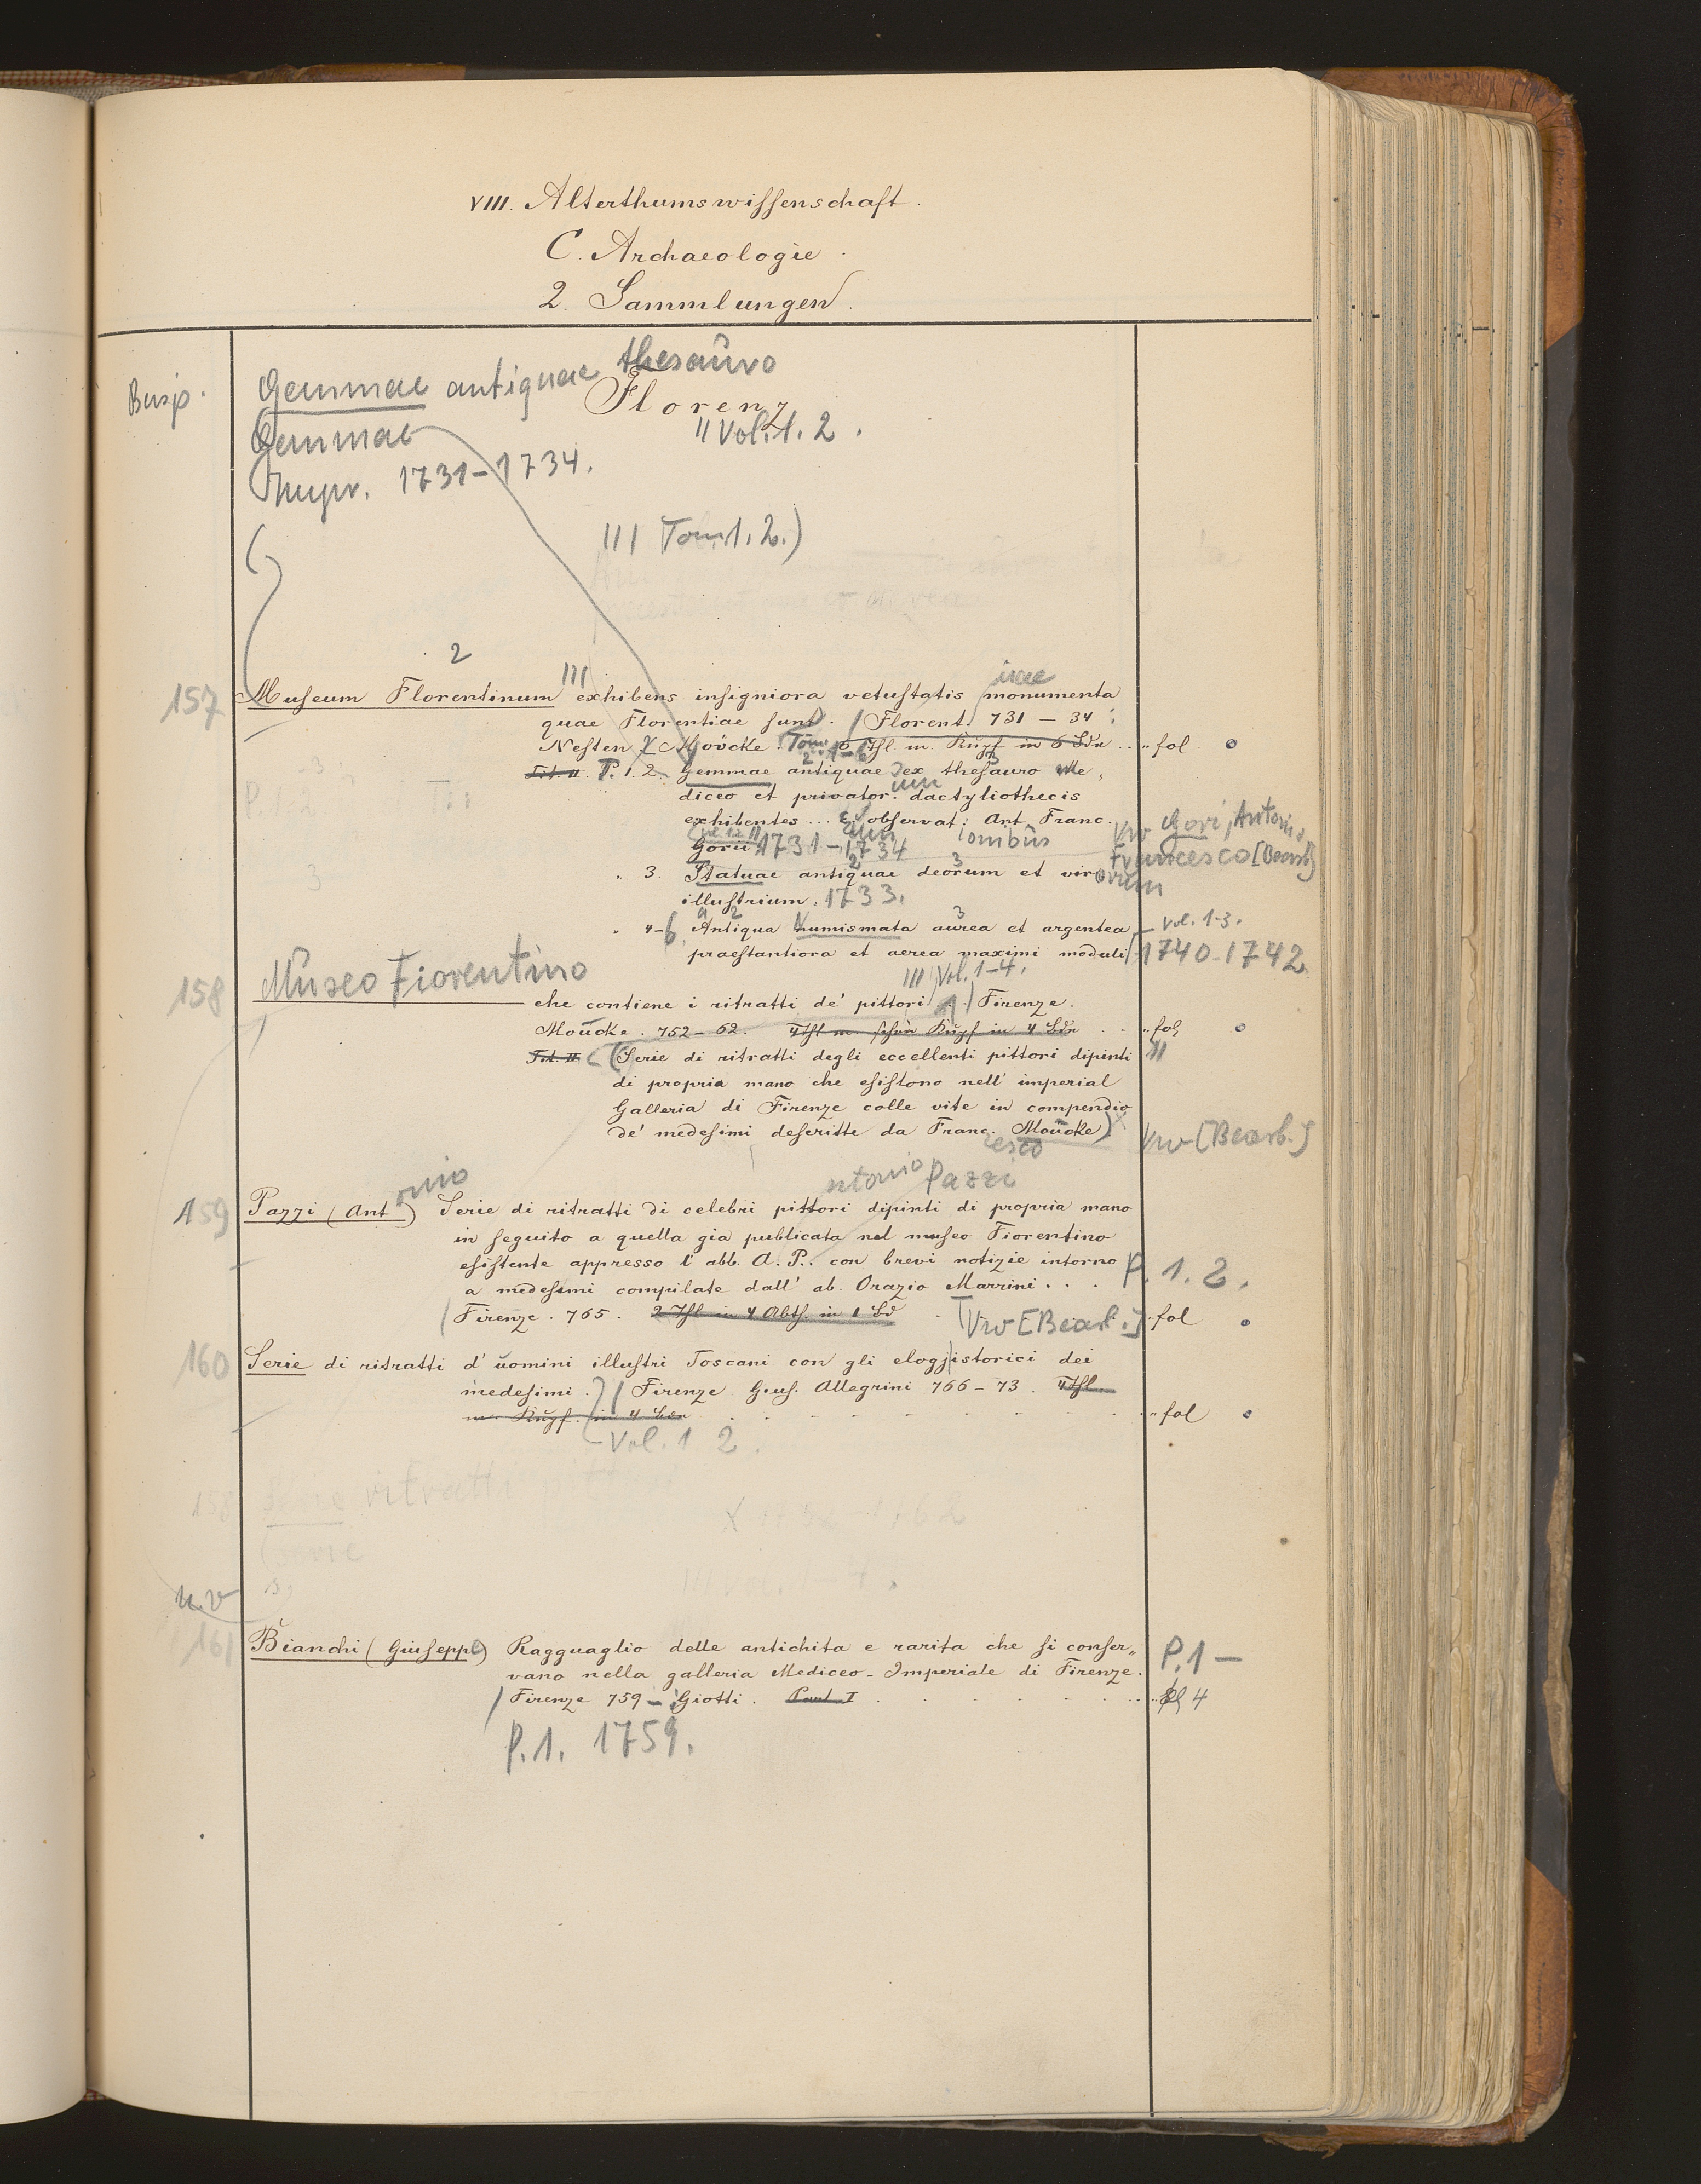 VIII. Alterthumswissenschaft.
C. Archaeologie.
2. Sammlungen.
Gemmae antiquae thesauro
Florenz
Gemmae
"Vol. 1. 2.
1731-1734.
III Tom 1. 2.)
2
III
157 Museum Florentinum exhibens insigniora vetustatis monumenta
quae Florentiae sunt. / Florent. 731 – 34
Nesten & Moücke. Tom 1-6 6 Thl. m. Kupf in 6 Bdn .. fol.
Tit. II P. 1. 2. Gemmae antiquae ex thesauro Me-
diceo et privator. um dactyliothecis
exhibentes ... c. observat: Ant. Franc.
ionibus
Vw Gori, Antonio
Gorii 1731-1734
Francesco [Bearb.]
3. Statuae antiquae deorum et virorum
illustrium. 1733.
4-6. Antiqua numismata aurea et argentea Vol. 1-3.
praestantiora et aerea maximi moduli 1740-1742
158 Museo Fiorentino
III Vol. 1-4.
che contiene i ritratti de' pittori. / Firenze.
Moücke. 752-62. 4 Thl m. schön Kupf in 4 Bdn .. fol
Tit. II (Serie di ritratti degli eccellenti pittori dipinti II
di propria mano che esistono nell' imperial
Galleria di Firenze colle vite in compendio
de' medesimi descritte da Franc. Moücke)
esco
Vw [Bearb.]
onio
ntonio Pazzi
159 Pazzi (Ant) Serie di ritratti di celebri pittori dipinti di propria mano
in seguito a quella gia publicata nel museo Fiorentino
esistente appresso l'abb. A. P.. con brevi notizie intorno
a medesimi compilate dall' ab. Orazio Marrini... P. 1. 2.
Firenze. 765. 2 Thl in 4 Abth. in 1 Bd Vw [Bearb.] fol
160 Serie di ritratti d'uomini illustri Toscani con gli elogj istorici dei
medesimi. / Firenze Gius. Allegrini 766-73. 4 Thl.
m. Kupf. in 4 Bdn .. fol
Vol. 1 2.
158 Serie ritratti
161 Bianchi (Giuseppe) Ragguaglio delle antichita e rarita che si conser„
P. 1 –
vano nella galleria Mediceo-Imperiale di Firenze.
/ Firenze 759 – Giotti. Part. I
4
P. 1. 1759.